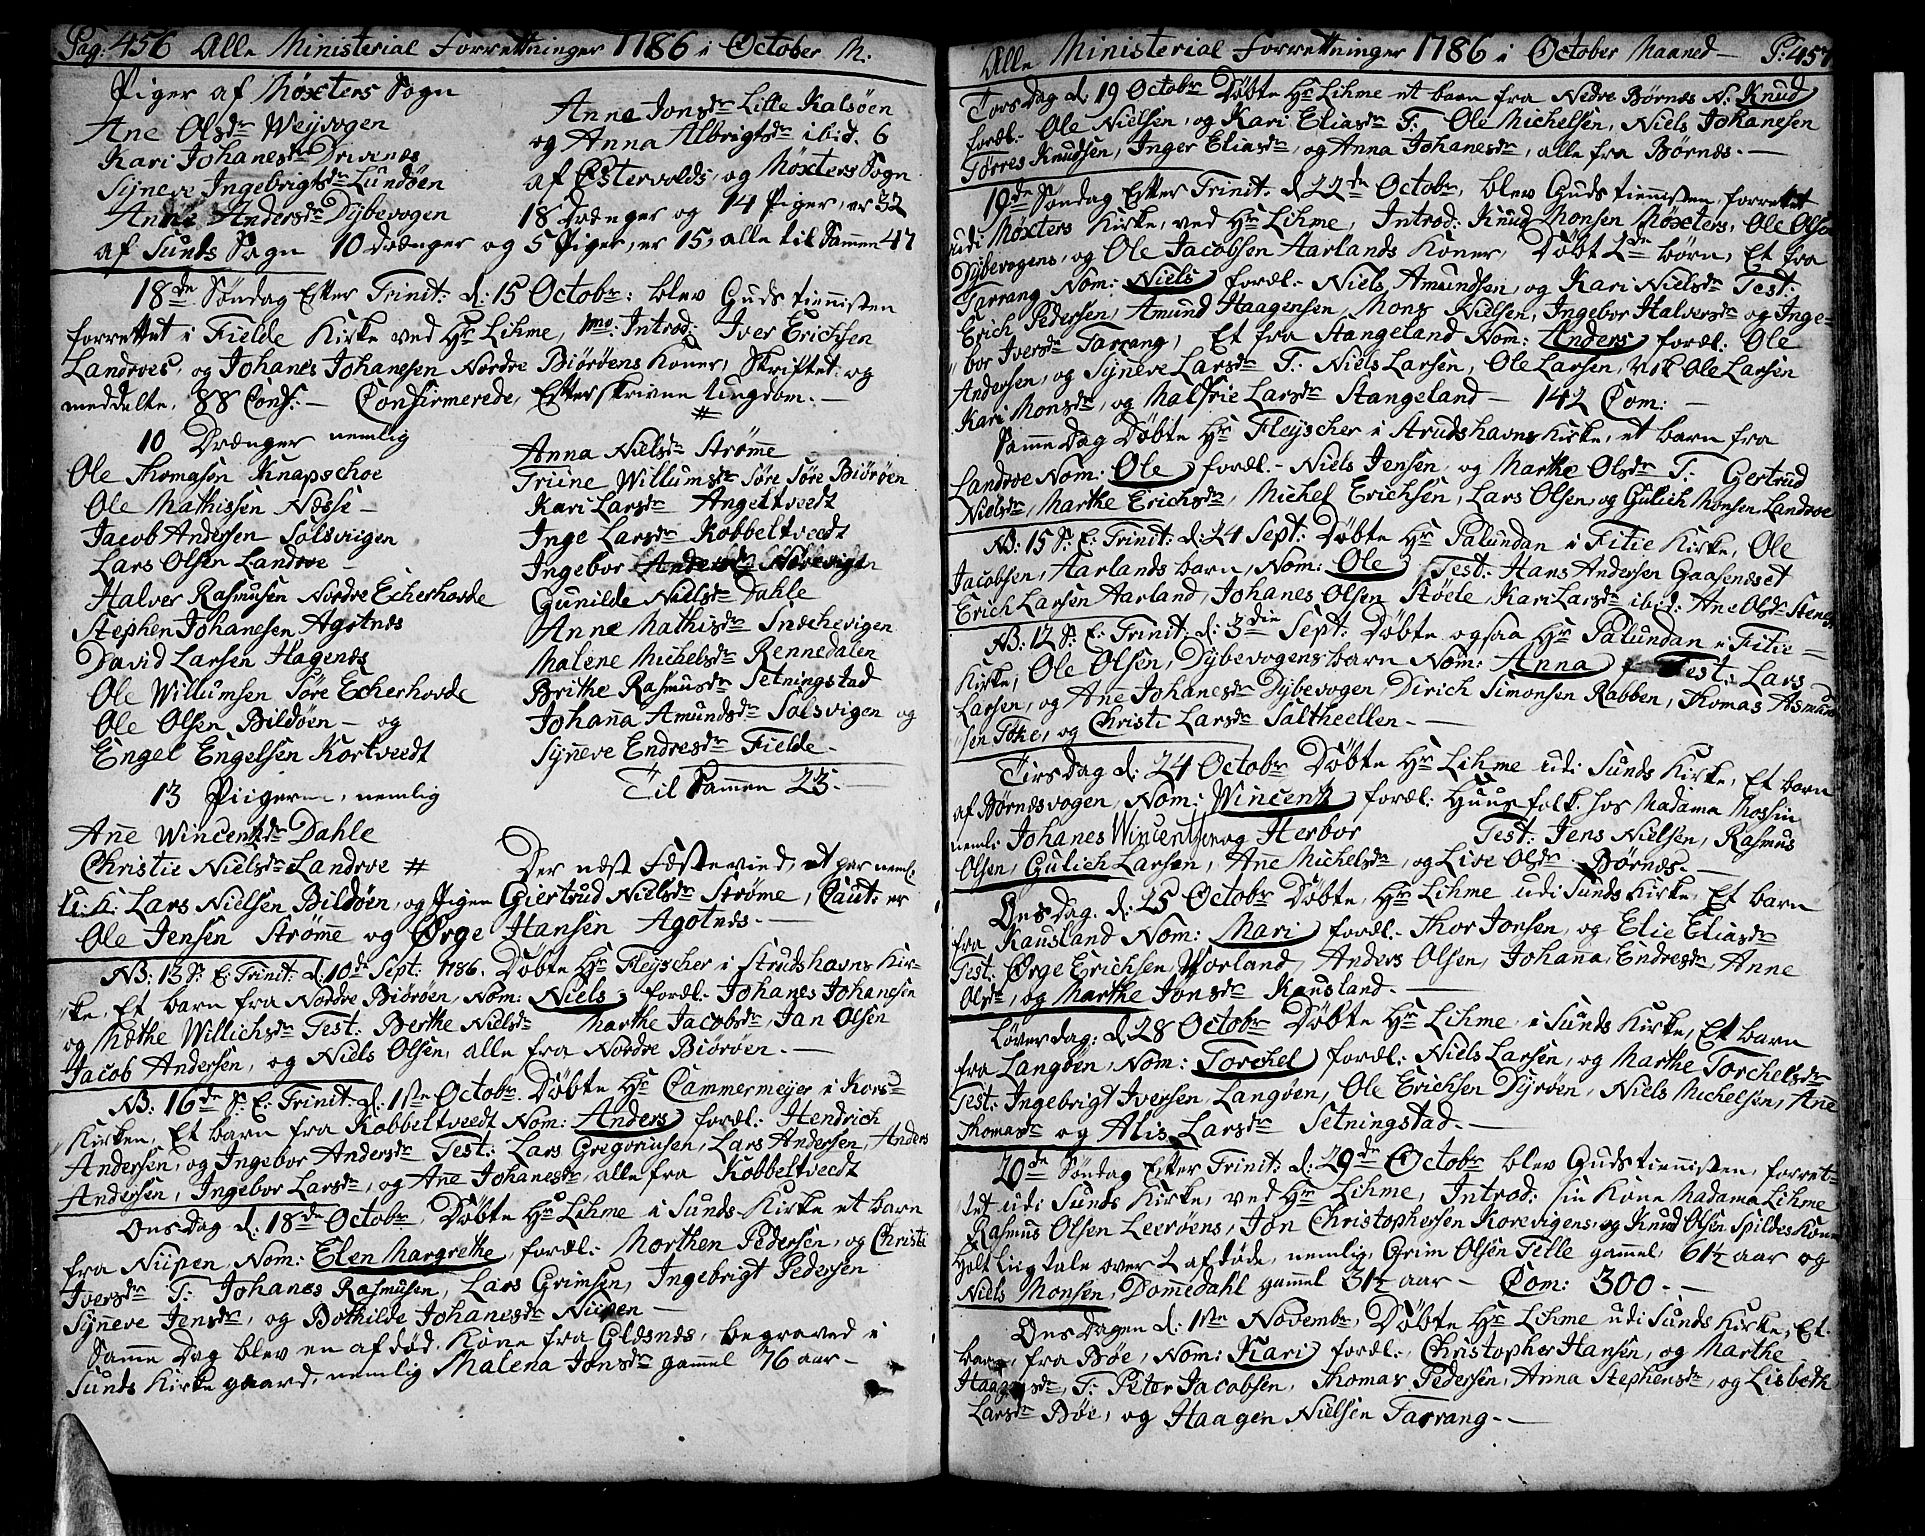 Pag: 456 Alle Ministerial Forrettninger 1786 i October M.
Piger af Møxters Sogn
Ane Olsdr Weyvogen
Kari Johanesdr Drivenæs
Sÿneve Ingebrigtsdr Lundøen
Anne Andersdr Dÿbevogen
Anne Jonsdr Lille Kalsøen
og Anna Albrigtsdr ibid. 6
af Østervolds, og Møxters Sogn
18 Drænger og 14 Piger, er 32
af Sunds Sogn 10 Drænger og 5 Piger, er 15, alle til Sammen 47
18de Søndag Efter Trinit: d: 15 Octobr: blev Guds tiennisten
forrettet i Fielde Kirke ved Hr Lihme, Introd: Iver Erichsen
Landroes, og Johanes Johanesen Nordre Biörøens Koner, Skriftet og
meddelte, 88 Conf: — Confirmerede, Efterskrivne Ungdom. —
10 Drænger nemlig
Ole Thomasøn Knapschoe
Ole Mathissen Næsse —
Jacob Andersen Solsviigen
Lars Olsen Landroe —
Halver Rasmusen Nordre Echerhovde
Stephen Johanesen Agotnæs
David Larsen Hagenæs
Ole Willumsen Søre Echerhovde
Ole Olsen Bildøen — og
Engel Engelsen Kortveedt
13 Piigerne, nemlig
Ane Wincentzdr Dahle
Christie Nielsdr Landroe #
#
Anna Nielsdr Strømme
Triine Willumsdr Søre Søre Biöröen
Kari Larsdr Angeltvedt
Inge Larsdr Kobbeltveedt
Ingebor
Gunilde Nielsdr Dahle
Anne Mathisdr Snechevigen
Malene Michelsdr Rennedalen
Brithe Rasmusdr Setningstad
Johana Amundsdr Solsvigen og
Sÿneve Endresdr Fielde —
Til Sammen 23. —
Der næst Fæstevind, et par neml:
U: K: Lars Nielsen Bildøen, og Pigen Giertrud Nielsdr Strøme, Caut: er
Ole Jensen Strømme og Ørge Hansen Agotnes. —
NB: 13 S: E: Trinit: d: 10de Sept: 1786. Døbte Hr Fleÿscher i Strudshavns Kir-
ke, Et barn fra Nordre Biörøen, Nom: Niels foræl: Johanes Johanesen
og Mæthe Willichsdr Test: Berthe Nielsdr Marthe Jacobsdr, Jan Olsen
Jacob Andersen, og Niels Olsen, alle fra Nordre Biörøen. —
NB: 16de S: E: Trinit: d: 1ste Octobr: Døbte Hr Cammermeÿer i Kors
Kirken, Et barn fra Kobbeltveedt Nom: Anders foræl: Hendrich
Andersen, og Ingebor Andersdr Test: Lars Gregoriusen, Lars Andersen, Anders
Andersen, Ingebor Larsdr, og Ane Johanesdr, alle fra Kobbeltveedt
Onsdag d: 18de Octobr: Døbte Hr Lihme i Sunds Kirke et barn
fra Niipen, Nom: Elen Margrethe, foræl: Morthen Pedersen, og Christi
Iversdr T: Johanes Rasmusen, Lars Grimsen, Ingebrigt Pedersen
Sÿneve Jensdr, og Bothilde Johanesdr Niipen —
Samme Dag blev en afdød Kone fra Glesnæs, begraved i
Sunds Kirke gaard, nemlig Malena Jonsdr gammel 76 aar —
Alle Ministerial Forrettninger 1786 i October Maaned — P: 457
Torsdag d: 19 Octobr Døbte Hr Lihme et barn fra Nedre Børnæs N: Knud
foræl: Ole Nielsen, og Kari Eliasdr T: Ole Michelsen, Niels Johanesen
Tørres Knudsen, Inger Eliasdr, og Anna Johanesdr, alle fra Børnæs. —
19de Søndag Efter Trinit: d 22de Octobr, blev Guds tiennisten, forrettet
udi Møxters Kirke, ved Hr Lihme, Introd: Knud Monsen Møxters, Ole Olsen
Dÿbevogens, og Ole Jacobsen Aarlands Koner, Døbt 2de børn, Et fra
Tarrang Nom: Niels foræl: Niels Amundsen, og Kari Nielsdr Test:
Erich Pedersen, Amund Haagensen, Mons Nielsen, Ingebor Halversdr og Inge-
bor Iversdr Tarrang, Et fra Stangeland Nom: Anders foræl: Ole
Andersen, og Sÿneve Larsdr T: Niels Larsen, Ole Larsen, Ole Larsen
Kari Monsdr, og Malfrie Larsdr Stangeland — 142 Com: —
Samme Dag Døbte Hr Fleÿscher i Strudshavns Kirke, et barn fra
Landroe Nom: Ole foræl: Niels Jensen, og Marthe Olsdr T: Gertrud
Nielsdr, Marthe Erichsdr, Michel Erichsen, Lars Olsen, og Gulich Monsen Landroe
NB: 15 S: E: Trinit: d: 24 Sept: Døbte Hr Palundan i Fitie Kirke, Ole
Jacobsen, Aarlands barn, Nom: Ole Test: Hans Andersen Gaasenæset
Erich Larsen Aarland, Johanes Olsen Støele, Kari Larsdr ibid: Ane Olsdr
NB: 12 S: E: Trinit: d: 3die Sept: Døbte ogsaa Hr Palundan i Fitie
Kirke, Ole Olsen, Dÿbevogens barn Nom: Anna Test: Lars
Larsen, og Ane Johanesdr Dÿbevogen, Dirich Simonsen Rabben, Thomas Asmund
sen Töke, og Christi Larsdr Saltheellen. —
Tirsdag d: 24 Octobr Døbte Hr Lihme udi Sunds Kirke, Et barn
af Børnæsvogen, Nom: Wincentz foræl: Huusfolk hos Madama Mossin
neml: Johanes Wincentsen og Herbor Test: Jens Nielsen, Rasmus
Olsen, Gulich Larsen, Ane Michelsdr, og Live Olsdr Børnæs. —
Onsdag d: 25 Octobr Døbte, Hr Lihme udi Sunds Kirke, Et barn
fra Kausland Nom: Mari foræl: Thor Jonsen, og Elie Eliasdr
Test: Ørge Erichsen, Worland, Anders Olsen, Johana Endresdr, Anne
Olsdr, og Marthe Jonsdr Kausland. —
Løverdag: d 28 Octobr Døbte Hr Lihme, i Sunds Kirke, Et barn
fra Langøen, Nom: Torchel foræl: Niels Larsen, og Marthe Torchelsdr
Test: Ingebrigt Iversen, Langøen, Ole Erichsen Dÿrøen, Niels Michelsen, Ane
Thomasdr og Alis Larsdr Setningstad. —
20de Søndag Efter Trinit: d: 29de Octobr blev Guds tiennisten, forret-
tet udi Sunds Kirke, ved Hr Lihme, Introd: sin Kone Madama Lihme
Rasmus Olsen Leerøens, Jon Christophersen Korsvigens, og Knud Olsen Spildes Kone
Holt Liigtale over 2 afdøde, nemlig Grim Olsen Telle gammel, 61½ aar og
Niels Monsen, Dommedahl gammel 31½ aar — Com: 300. —
Onsdagen d: 1ste Novembr, Døbte Hr Lihme udi Sunds Kirke, Et
barn, fra Bøe, Nom: Kari foræl: Christopher Hansen, og Marthe
Haagensdr, T: Peter Jacobsen, Thomas Pedersen, Anna Stephensdr, og Lisbeth
Larsdr Bøe, og Haagen Nielsen Tarrang. —